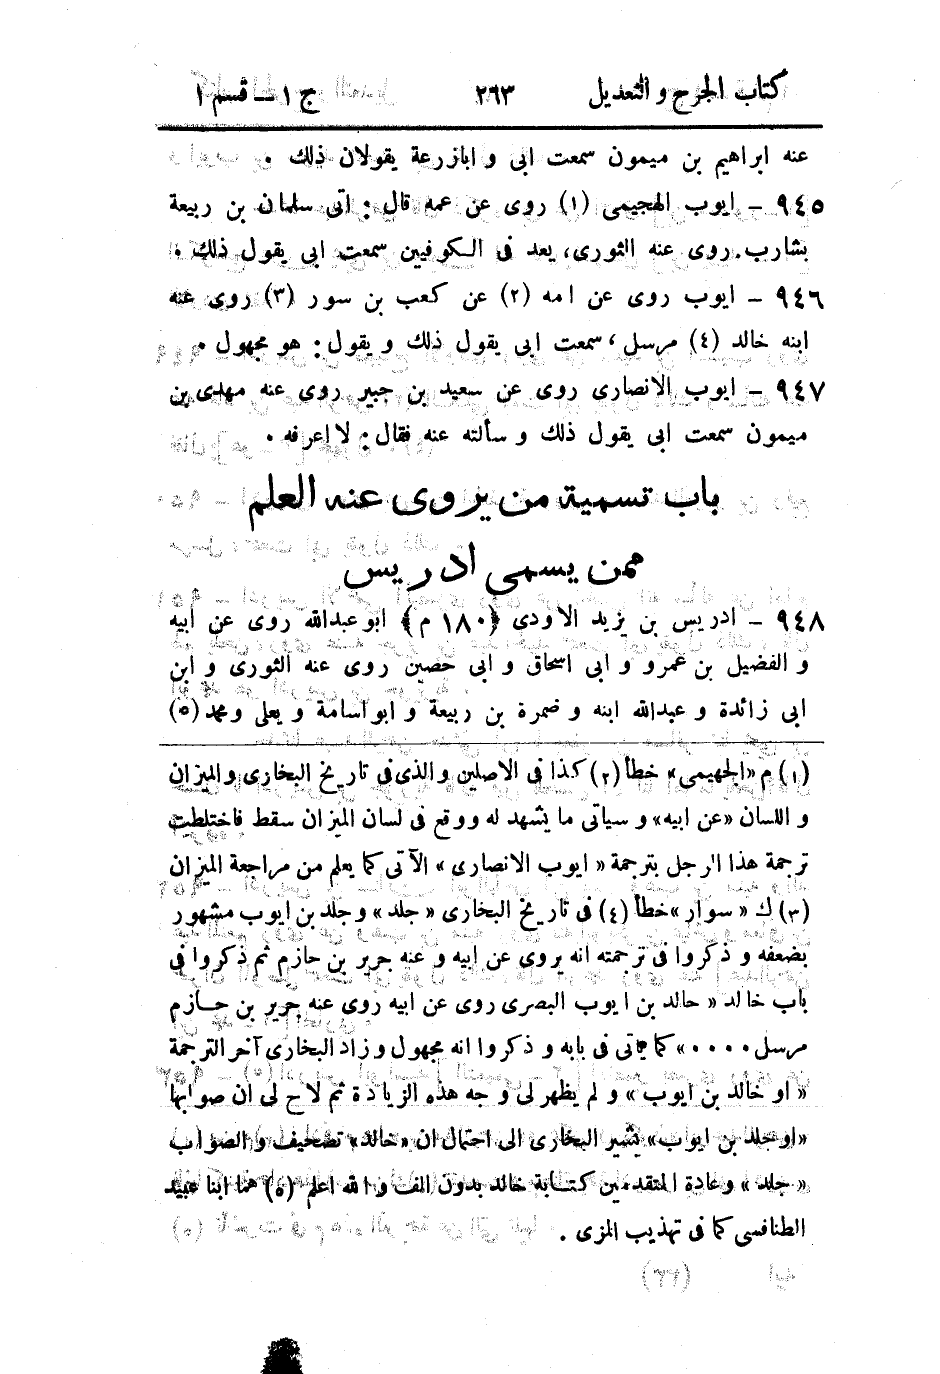 كتاب الجرح والتعديل ٢٦٣ ج ١ – قسم ١
عنه ابراهيم بن ميمون سمعت ابى و ابازرعة يقولان ذلك .
٩٤٥ – ايوب الهجيمى (١) روى عن عمه قال : اتى سلمان بن ربيعة
بشارب. روى عنه الثورى، يعد فى الكوفيين سمعت ابى يقول ذلك .
٩٤٦ – ايوب روى عن امه (٢) عن كعب بن سور (٣) روى عنه
ابنه خالد (٤) مرسل، سمعت ابى يقول ذلك و يقول : هو مجهول .
٩٤٧ – ايوب الانصارى روى عن سعيد بن جبير روى عنه مهدى بن
ميمون سمعت ابى يقول ذلك و سألته عنه فقال : لا اعرفه .
باب تسمية من يروى عنه العلم
ممن يسمى ادريس
٩٤٨ – ادريس بن يزيد الاودى ﴿١٨٠ م﴾ ابو عبدالله روى عن ابيه
و الفضيل بن عمرو و ابى اسحاق و ابى حصين روى عنه الثورى و ابن
ابى زائدة و عبدالله ابنه و ضمرة بن ربيعة و ابو اسامة و يعلى ومحمد (٥)
(١) م «الجهيمى» خطأ (٢) كذا فى الاصلين والذى فى تاريخ البخارى والميزان
و اللسان «عن ابيه» و سياتى ما يشهد له ووقع فى لسان الميزان سقط فاختلطت
ترجمة هذا الرجل بترجمة « ايوب الانصارى » الآتى كما يعلم من مراجعة الميزان
(٣) ك « سوار » خطأ (٤) فى تاريخ البخارى « جلد » وجلد بن ايوب مشهور
بضعفه و ذكروا فى ترجمته انه يروى عن ابيه و عنه جرير بن حازم ثم ذكروا فى
باب خالد « خالد بن ايوب البصرى روى عن ابيه روى عنه جرير بن حازم
مرسل ....» كما ياتى فى بابه و ذكروا انه مجهول وزاد البخارى آخر الترجمة
« او خالد بن ايوب » و لم يظهر لى وجه هذه الزيادة ثم لاح لى ان صوابها
«او جلد بن ايوب» يشير البخارى الى احتمال ان «خالد» تصحيف والصواب
« جلد » وعادة المتقدمين كتابة خالد بدون الف والله اعلم (٥) هما ابنا عبيد
الطنافسى كما فى تهذيب المزى .